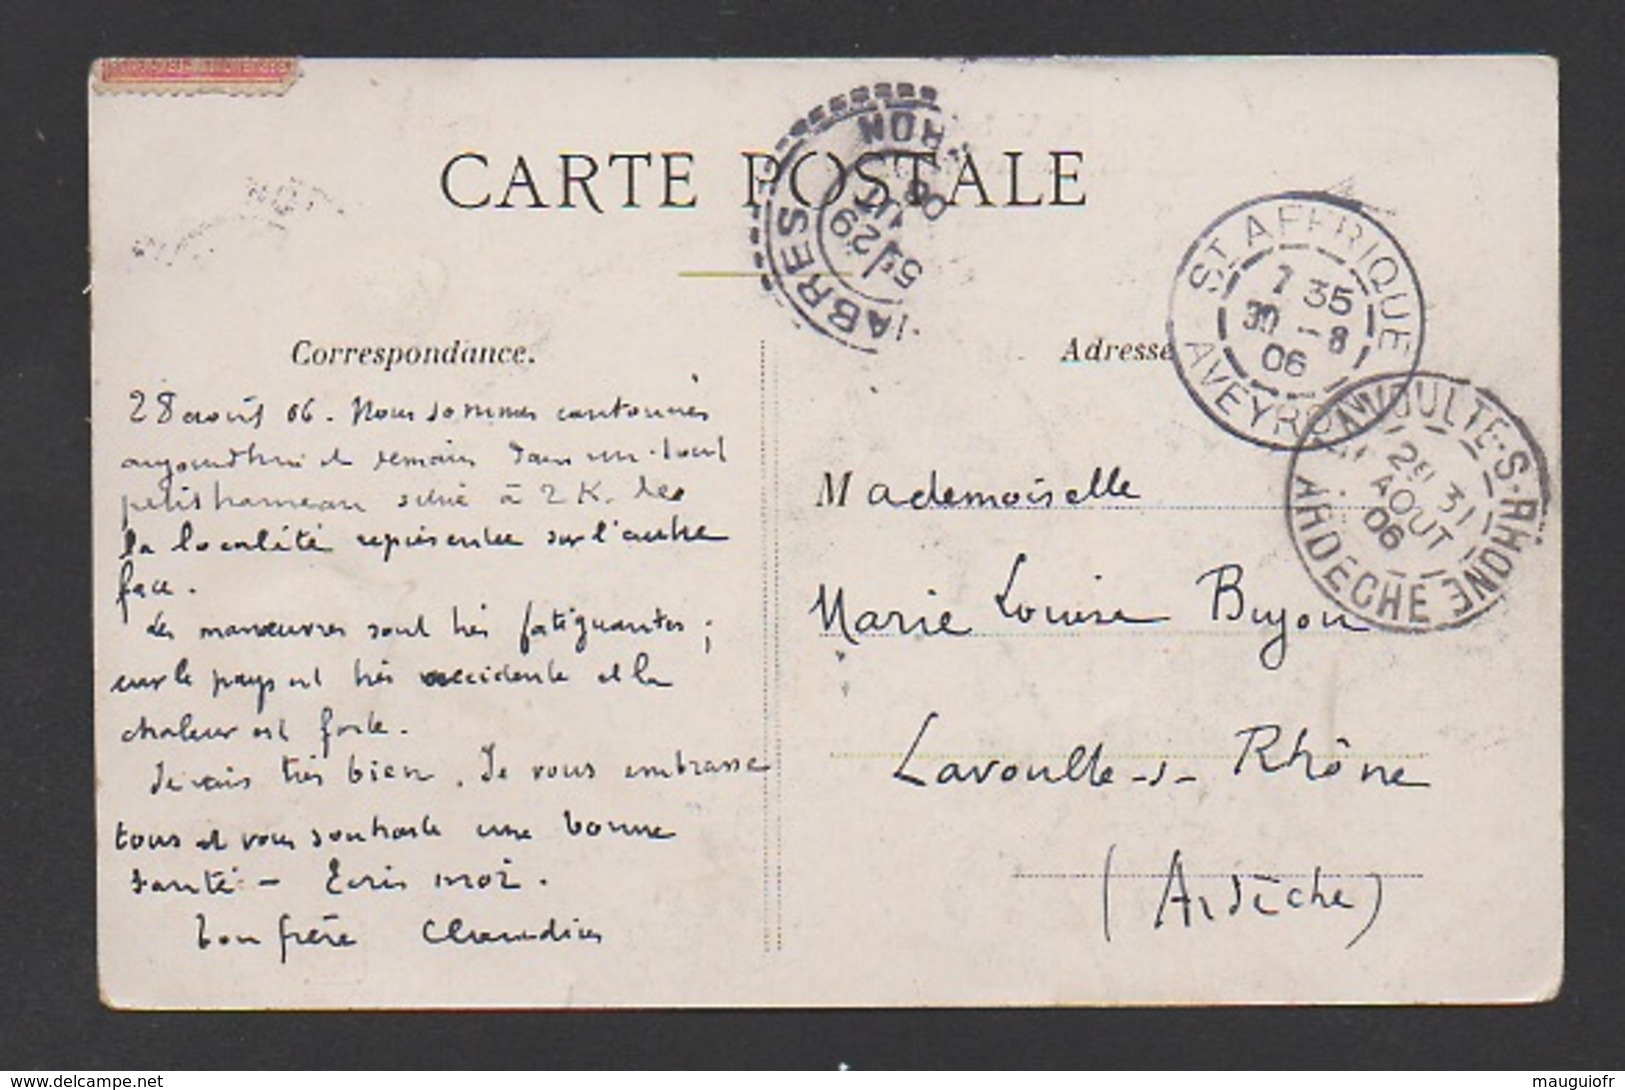 CARTE POSTALE
Correspondance.
Adresse
28 août 06. Nous sommes cantonnés
aujourd'hui et demain dans un tout
petit hameau situé à 2 K. de
la localité représentée sur l'autre
face.
Les manœuvres sont très fatigantes ;
car le pays est très accidenté et la
chaleur est forte.
Je vais très bien. Je vous embrasse
tous et vous souhaite une bonne
santé - Ecris moi.
Ton frère Claudius
Mademoiselle
Marie Louise Buyon
Lavoulte-s-Rhône
(Ardèche)
ABRES
5E/29
06
ST AFFRIQUE
7 35
30 -8
06
AVEYRON
LAVOULTE-S-RHONE
31
AOUT
06
ARDECHE
delcampe.net
mauguiofr